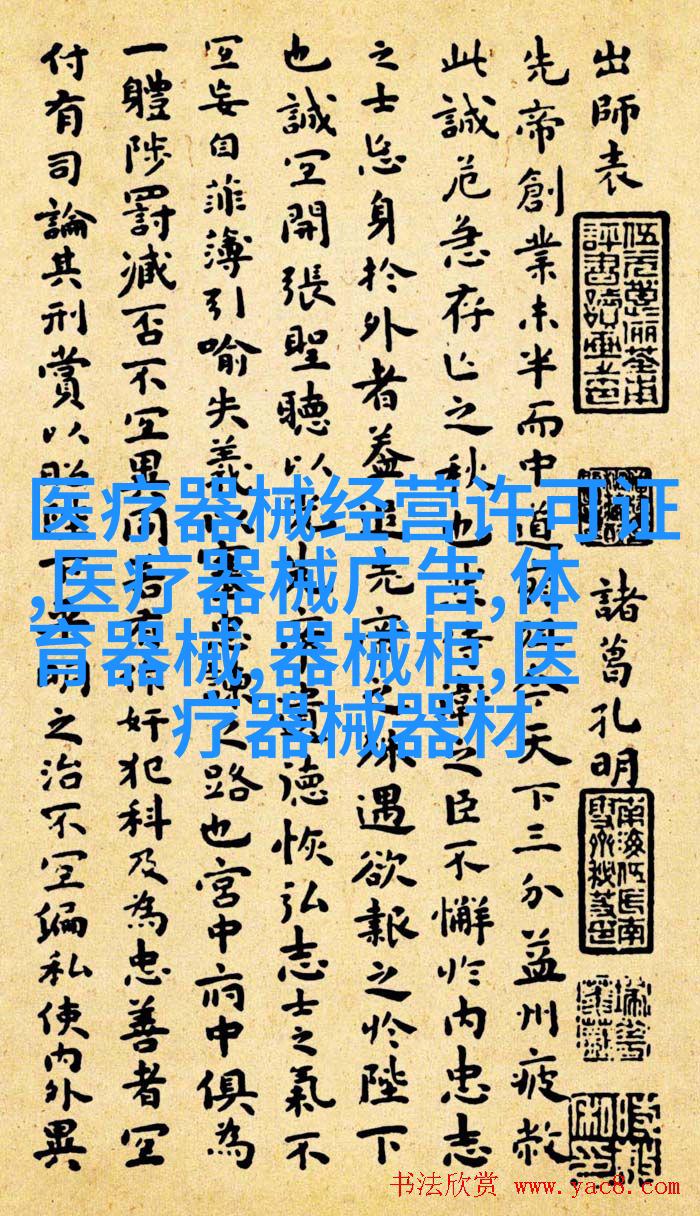 出師表
諸葛孔明
先帝創業未半而中道崩殂今天下三分益州疲敝
此誠危急存亡之秋也然侍衛之臣不懈於內忠志
之士忘身於外者蓋追先帝之殊遇欲報之於陛下
也誠宜開張聖聽以光先帝遺德恢弘志士之氣不
宜妄自菲薄引喻失義以塞忠諫之路也宮中府中俱為
一體陟罰臧否不宜異同若有作奸犯科及為忠善者宜
付有司論其刑賞以昭陛下平明之治不宜偏私使內外異
医疗器械经营许可证
,医疗器械广告,体
育器械,器械柜,医
疗器械器材
书法欣赏 www.yac8.com